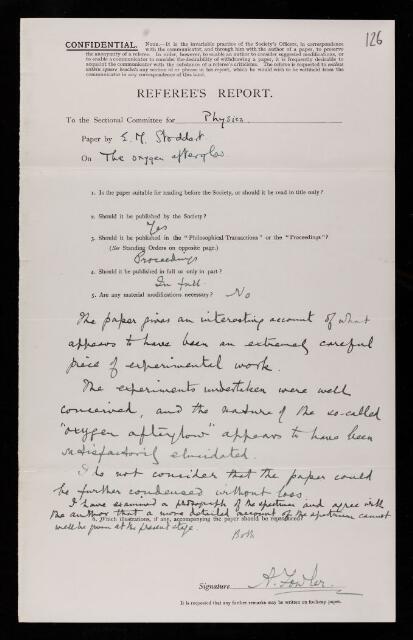 126
CONFIDENTIAL. Note.—It is the invariable practice of the Society's Officers, in correspondence
with the communicator, and through him with the author of a paper, to preserve
the anonymity of a referee. In order, however, to enable an author to consider suggested modifications, or
to enable a communicator to consider the desirability of withdrawing a paper, it is frequently desirable to
acquaint the communicator with the substance of a referee's criticisms. The referee is requested to enclose
within square brackets any section or phrase in his report, which he would wish to be withheld from the
communicator in any correspondence of this kind.
REFEREE'S REPORT.
To the Sectional Committee for Physics.
Paper by E. M. Stoddart
On The oxygen afterglow
1. Is the paper suitable for reading before the Society, or should it be read in title only?
2. Should it be published by the Society?
Yes
3. Should it be published in the "Philosophical Transactions" or the "Proceedings"?
(See Standing Orders on opposite page.)
Proceedings
4. Should it be published in full or only in part?
In full
5. Are any material modifications necessary? No
The paper gives an interesting account of what
appears to have been an extremely careful
piece of experimental work.
The experiments undertaken were well
conceived, and the nature of the so-called
"oxygen afterglow" appears to have been
satisfactorily elucidated.
I do not consider that the paper could
be further condensed without loss.
I have examined a photograph of the spectrum and agree with
the author that a more detailed account of the spectrum cannot
6. Which illustrations, if any, accompanying the paper should be reproduced?
well be given at the present stage.
Both
Signature A. Fowler.
It is requested that any further remarks may be written on foolscap paper.